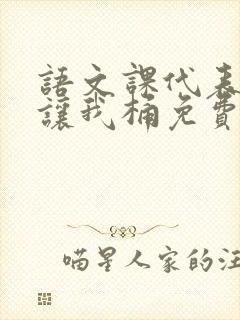 語文課代表
讓我桶免費
喵星人家的汪